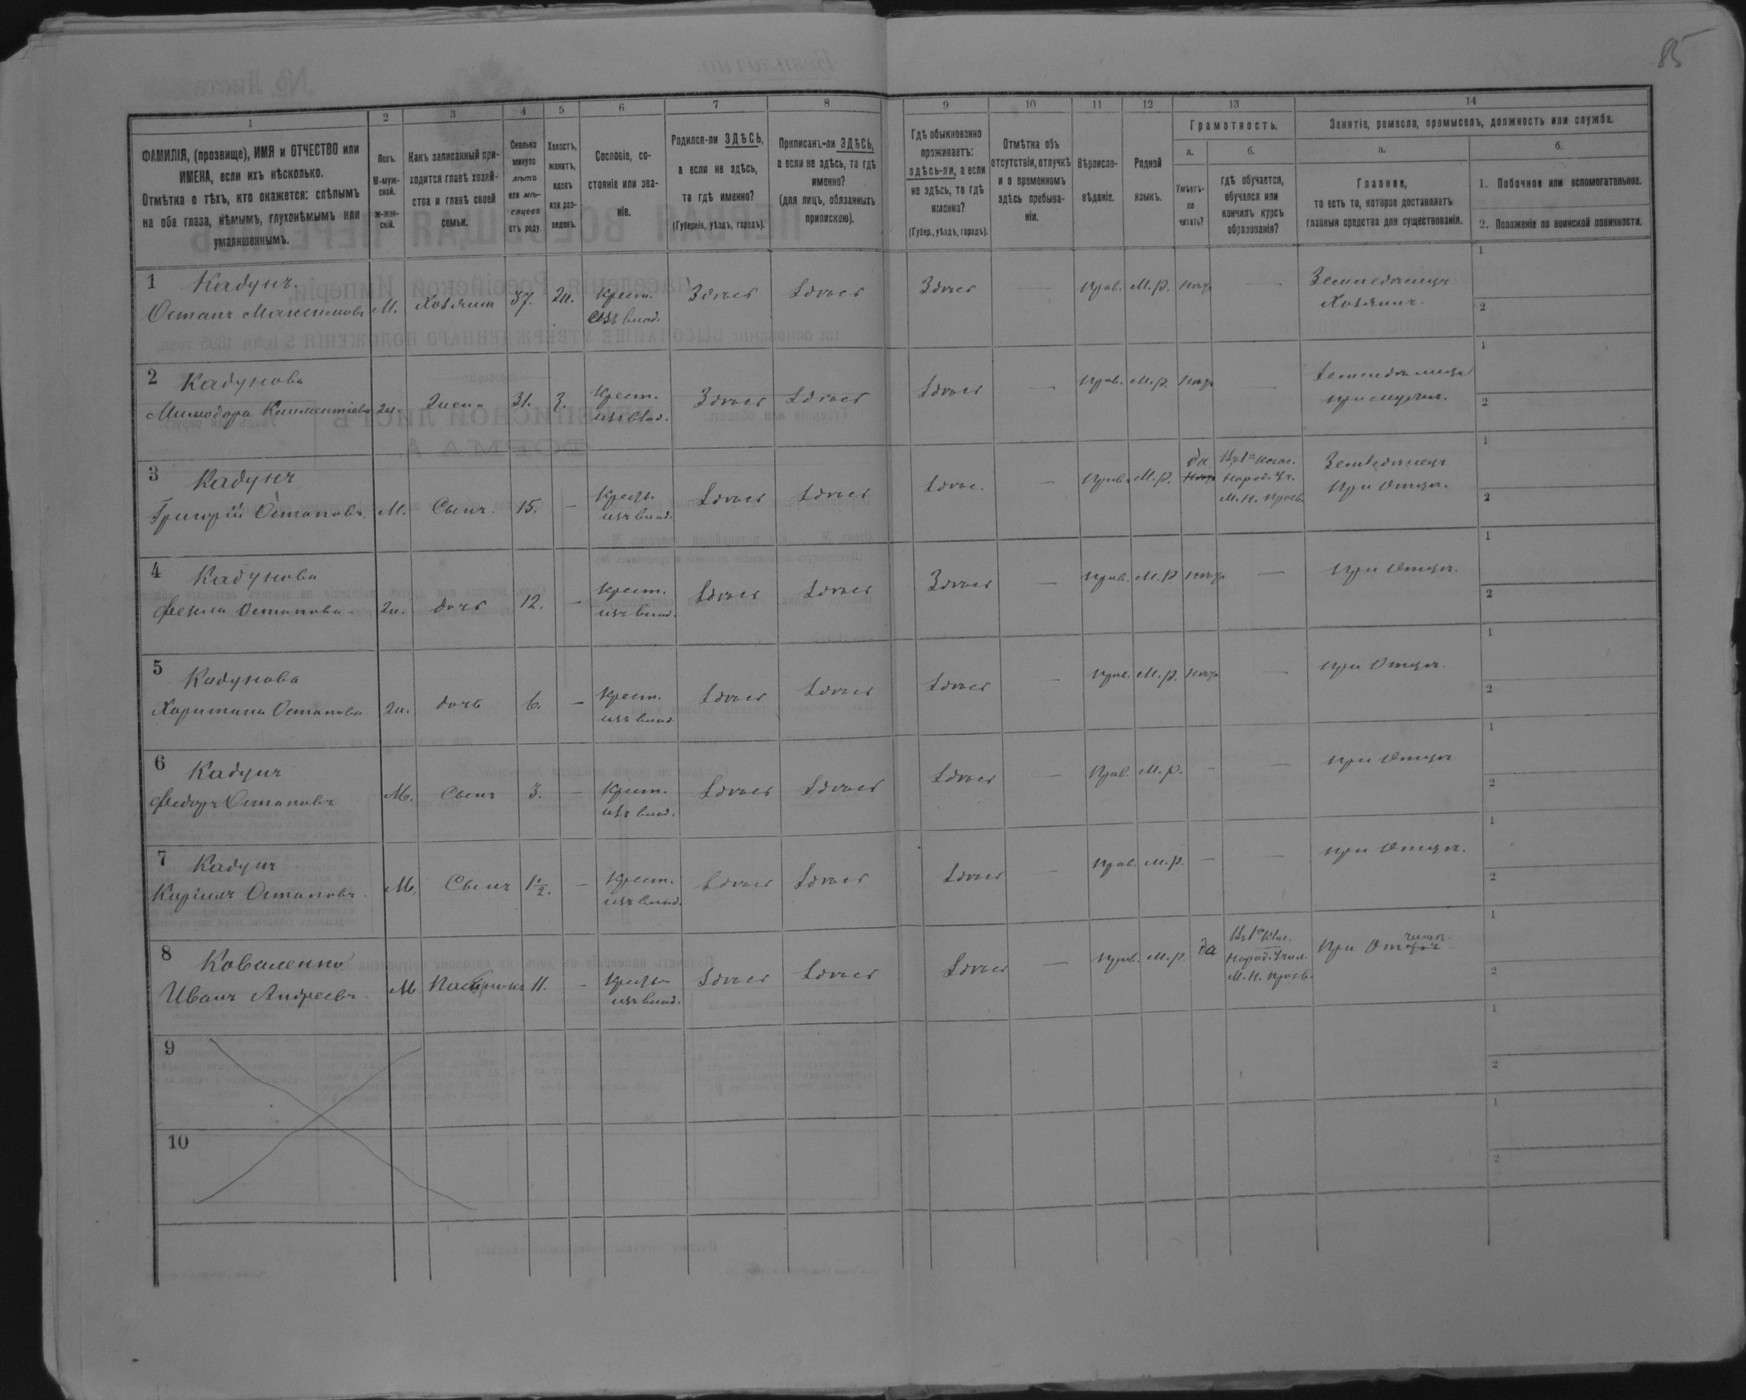 85
1 2 3 4 5 6 7 8 9 10 11 12 13 14
ФАМИЛІЯ, (прозвище), ИМЯ и ОТЧЕСТВО или
ИМЕНА, если ихъ нѣсколько.
Отмѣтка о тѣхъ, кто окажется: слѣпымъ
на оба глаза, нѣмымъ, глухонѣмымъ или
умалишеннымъ.
Полъ.
М-муж-
ской.
Ж-жен-
скій.
Какъ записанный при-
ходится главѣ хозяй-
ства и главѣ своей
семьи.
Сколько
минуло
лѣтъ
или мѣ-
сяцевъ
отъ роду.
Холостъ,
женатъ,
вдовъ
или раз-
веденъ.
Сословіе, со-
стояніе или зва-
ніе.
Родился-ли ЗДѢСЬ,
а если не здѣсь,
то гдѣ именно?
(Губернія, уѣздъ, городъ).
Приписанъ-ли ЗДѢСЬ,
а если не здѣсь, то гдѣ
именно?
(для лицъ, обязанныхъ
припискою).
Гдѣ обыкновенно
проживаетъ:
здѣсь-ли, а если
не здѣсь, то гдѣ
именно?
(Губер., уѣздъ, городъ).
Отмѣтка объ
отсутствіи, отлучкѣ
и о временномъ
здѣсь пребыва-
ніи.
Вѣроиспо-
вѣданіе.
Родной
языкъ.
Грамотность.
а.
Умѣетъ-
ли
читать?
б.
гдѣ обучается,
обучался или
кончилъ курсъ
образованія?
Занятіе, ремесло, промыселъ, должность или служба.
а.
Главное,
то есть то, которое доставляетъ
главныя средства для существованія.
б.
1. Побочное или вспомогательное.
2. Положеніе по воинской повинности.
1 Кадунъ
Остапъ Максимовъ М. Хозяинъ 37. Ж. Крест. изъ влад. Здѣсь Здѣсь Здѣсь — Прав. М.р. нѣтъ — Земледѣлецъ Хозяинъ.
2 Кадунова
Ж. Жена 31. З. Крест. изъ влад. Здѣсь Здѣсь Здѣсь — Прав. М.р. нѣтъ — при мужѣ.
3 Кадунъ
Григорій Остаповъ М. Сынъ. 15. — Крест. изъ влад. Здѣсь Здѣсь Здѣсь. Прав. М.р. да Народ. Уч. М.Н. Просв. Земледѣлецъ При Отцѣ.
4 Кадунова
Фекла Остапова Ж. дочь 12. — Крест. изъ влад. Здѣсь Здѣсь Здѣсь — Прав. М.р. нѣтъ — При Отцѣ.
5 Кадунова
Харитина Остапова Ж. дочь 6. — Крест. изъ влад. Здѣсь Здѣсь Здѣсь — Прав. М.р. нѣтъ — При Отцѣ.
6 Кадунъ
Федоръ Остаповъ М. Сынъ 3. — Крест. изъ влад. Здѣсь Здѣсь Здѣсь — Прав. М.р. — — При Отцѣ
7 Кадунъ
Кирилъ Остаповъ М. Сынъ 1½. — Крест. изъ влад. Здѣсь Здѣсь Здѣсь — Прав. М.р. — — При Отцѣ.
8 Коваленко
Иванъ Андреевъ М 11. — Крест. изъ влад. Здѣсь Здѣсь Здѣсь — Прав. М.р. да Народ. Учил. М.Н. Просв. При
9
10